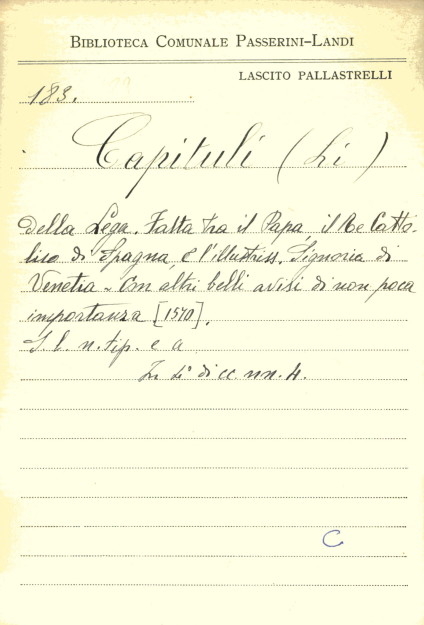 BIBLIOTECA COMUNALE PASSERINI-LANDI
LASCITO PALLASTRELLI
183.
Capituli (Li)
della Lega. Fatta tra il Papa, il Re Catto-
lico di Spagna, e l'illustriss. Signoria di
Venetia - Con altri belli avisi di non poca
importanza [1570].
S. l. n. tip. e a
In 4° di cc. nn. 4.
C